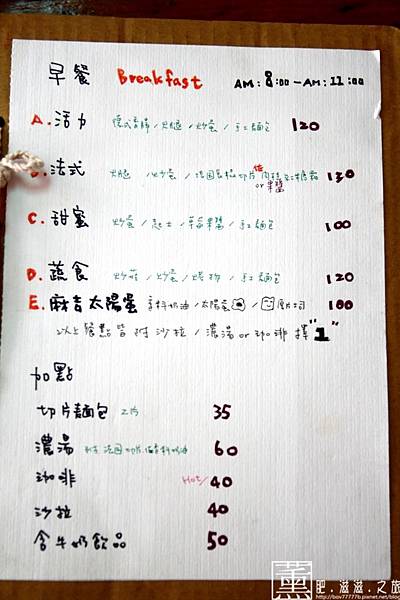 早餐 Breakfast AM:8:00-AM:11:00
A.活力 德式香腸/火腿/炒蛋/手工麵包 120
B.法式 火腿/炒蛋/法國長棍切片 or果醬 130
C.甜蜜 炒蛋/起士/草莓果醬/手工麵包 100
D.蔬食 炒菇/炒蛋/烤物/手工麵包 120
E.麻吉太陽蛋 香料奶油/太陽蛋/厚片土司 100
以上餐點皆附沙拉/濃湯or咖啡擇"1"
加點
切片麵包 2片 35
濃湯 60
咖啡 Hot/40
沙拉 40
含牛奶飲品 50
薰 肥.滋滋.之旅